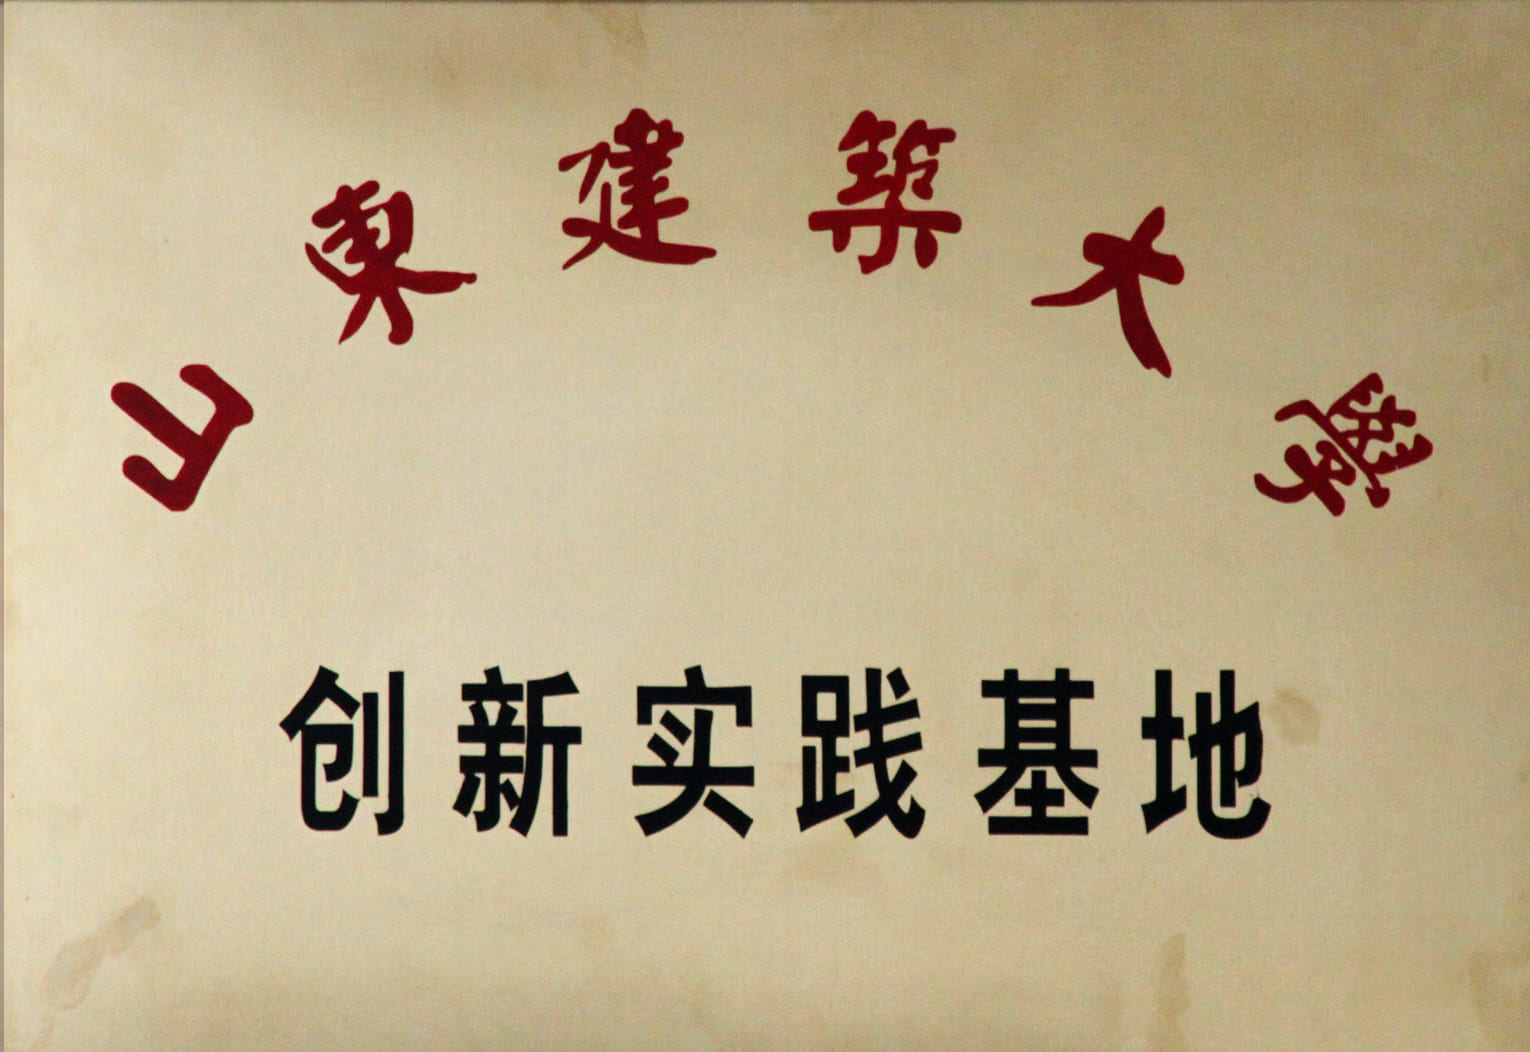 山東建築大學
创新实践基地